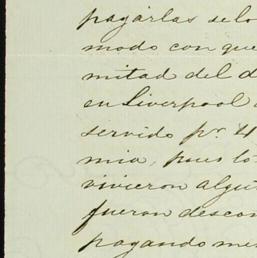 pagárlas se lo
modo con que
mitad del d
en Liverpool
servido pr. 4
mia, pues lo
vivieron algú
fueron descon
pagando me